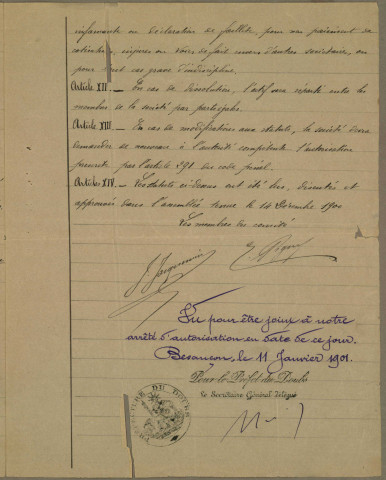 infamante ou déclaration de faillite, pour non paiement de
cotisations, injures ou voies de fait envers d'autres sociétaires, ou
pour tout cas grave d'indiscipline.
Article XII. — En cas de dissolution, l'actif sera réparti entre les
membres de la société par parts égales.
Article XIII. — En cas de modifications aux statuts, la société devra
demander de nouveau à l'autorité compétente l'autorisation
prescrite par l'article 291 du code pénal.
Article XIV. — Les statuts ci-dessus ont été lus, discutés et
approuvés dans l'assemblée tenue le 14 Décembre 1900
Les membres du comité
J. Jacquemin
Vu pour être joint à notre
arrêté d'autorisation en date de ce jour.
Besançon, le 11 Janvier 1901.
Pour le Préfet du Doubs
le Secrétaire Général délégué
PRÉFECTURE DU DOUBS